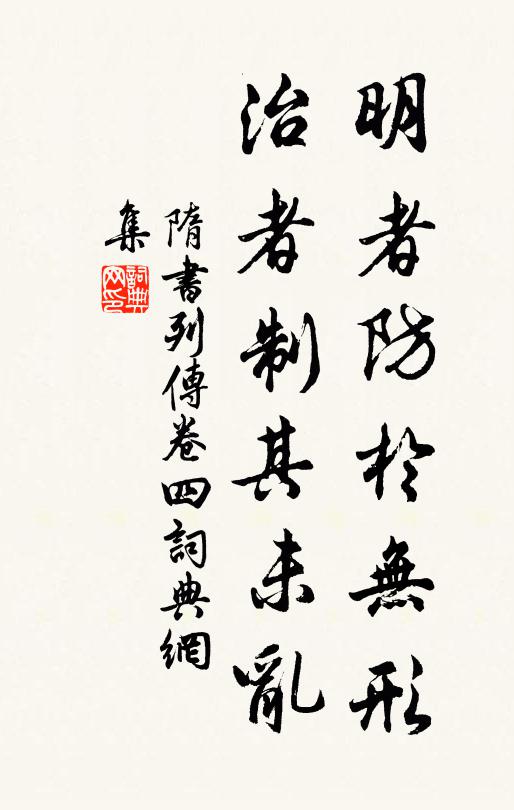 明者防於無形
治者制其未亂
隋書列傳卷四詞典網
集
詞典網印